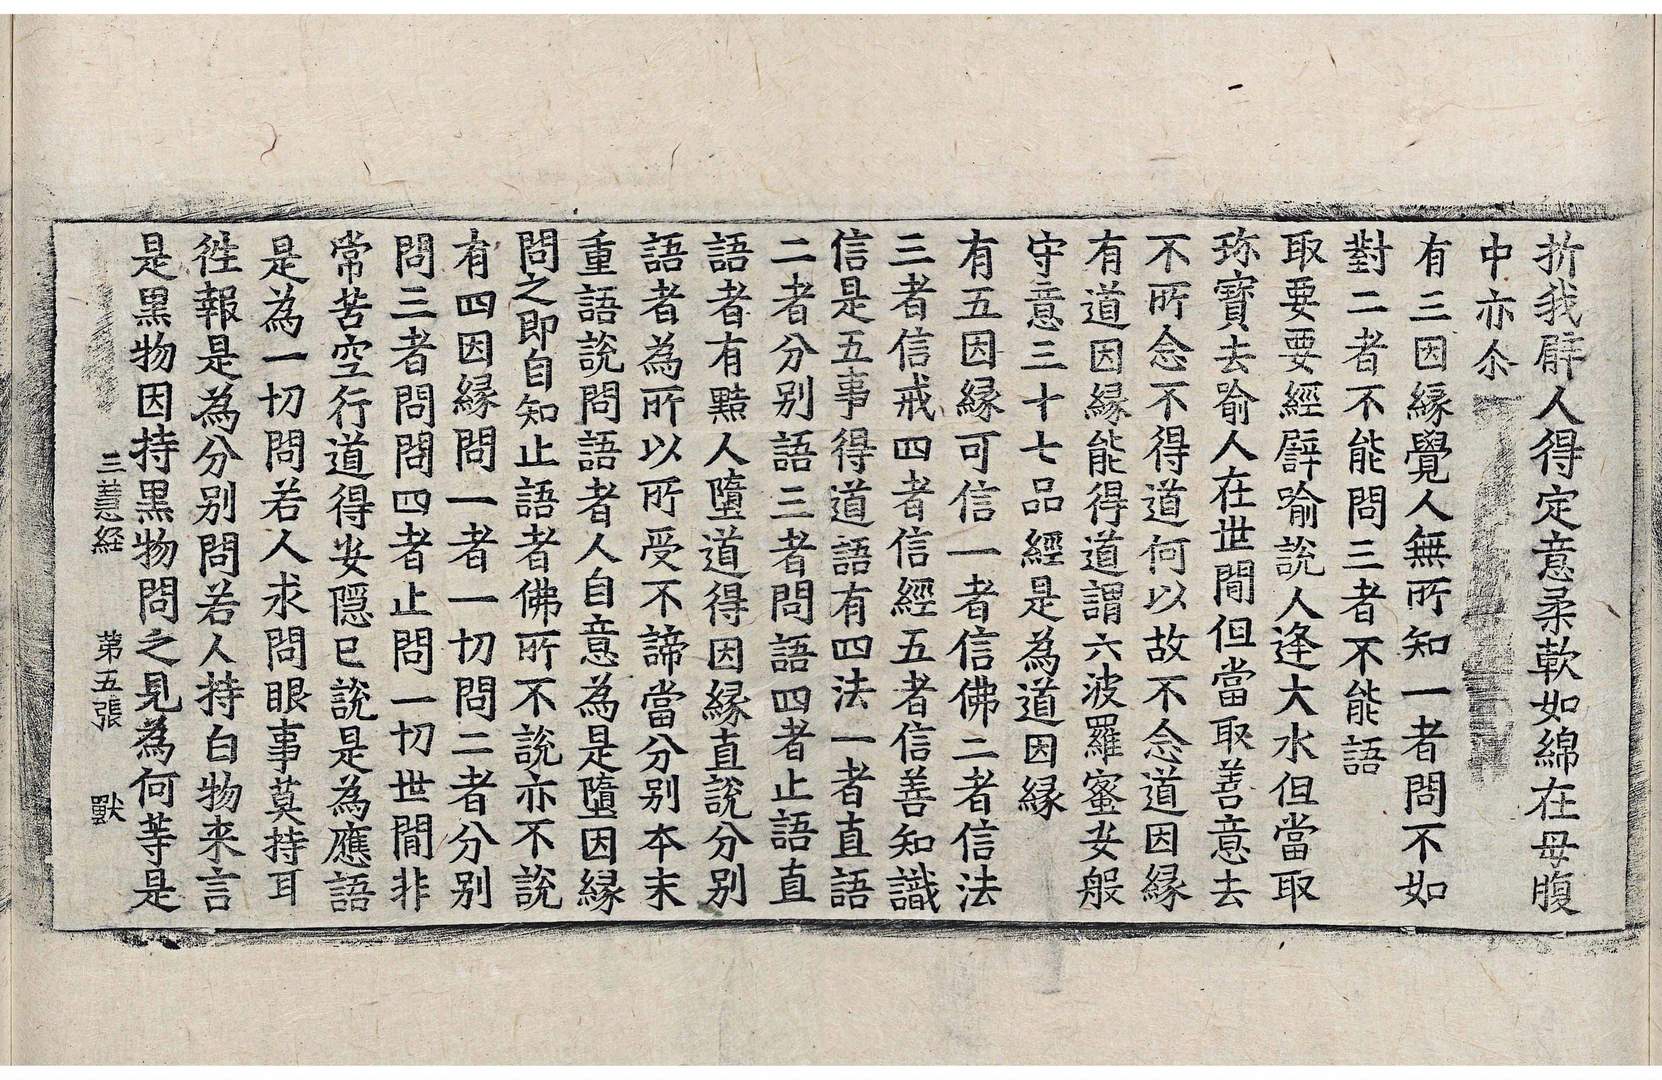 折我廦人得定意柔軟如綿在母腹
中亦尒
有三因緣覺人無所知一者問不如
對二者不能問三者不能語
取要要經譬喻說人逢大水但當取
珎寶去喻人在世閒但當取善意去
不所念不得道何以故不念道因緣
有道因緣能得道謂六波羅蜜安般
守意三十七品經是為道因緣
有五因緣可信一者信佛二者信法
三者信戒四者信經五者信善知識
信是五事得道語有四法一者直語
二者分別語三者問語四者止語直
語者有黠人墮道得因緣直說分別
語者為所以所受不諦當分別本末
重語說問語者人自意為是墮因緣
問之即自知止語者佛所不說亦不說
有四因緣問一者一切問二者分別
問三者問問四者止問一切世閒非
常苦空行道得安隱已說是為應語
是為一切問若人求問眼事莫持耳
徃報是為分別問若人持白物來言
是黑物因持黑物問之見為何等是
三慧經 第五張 獸